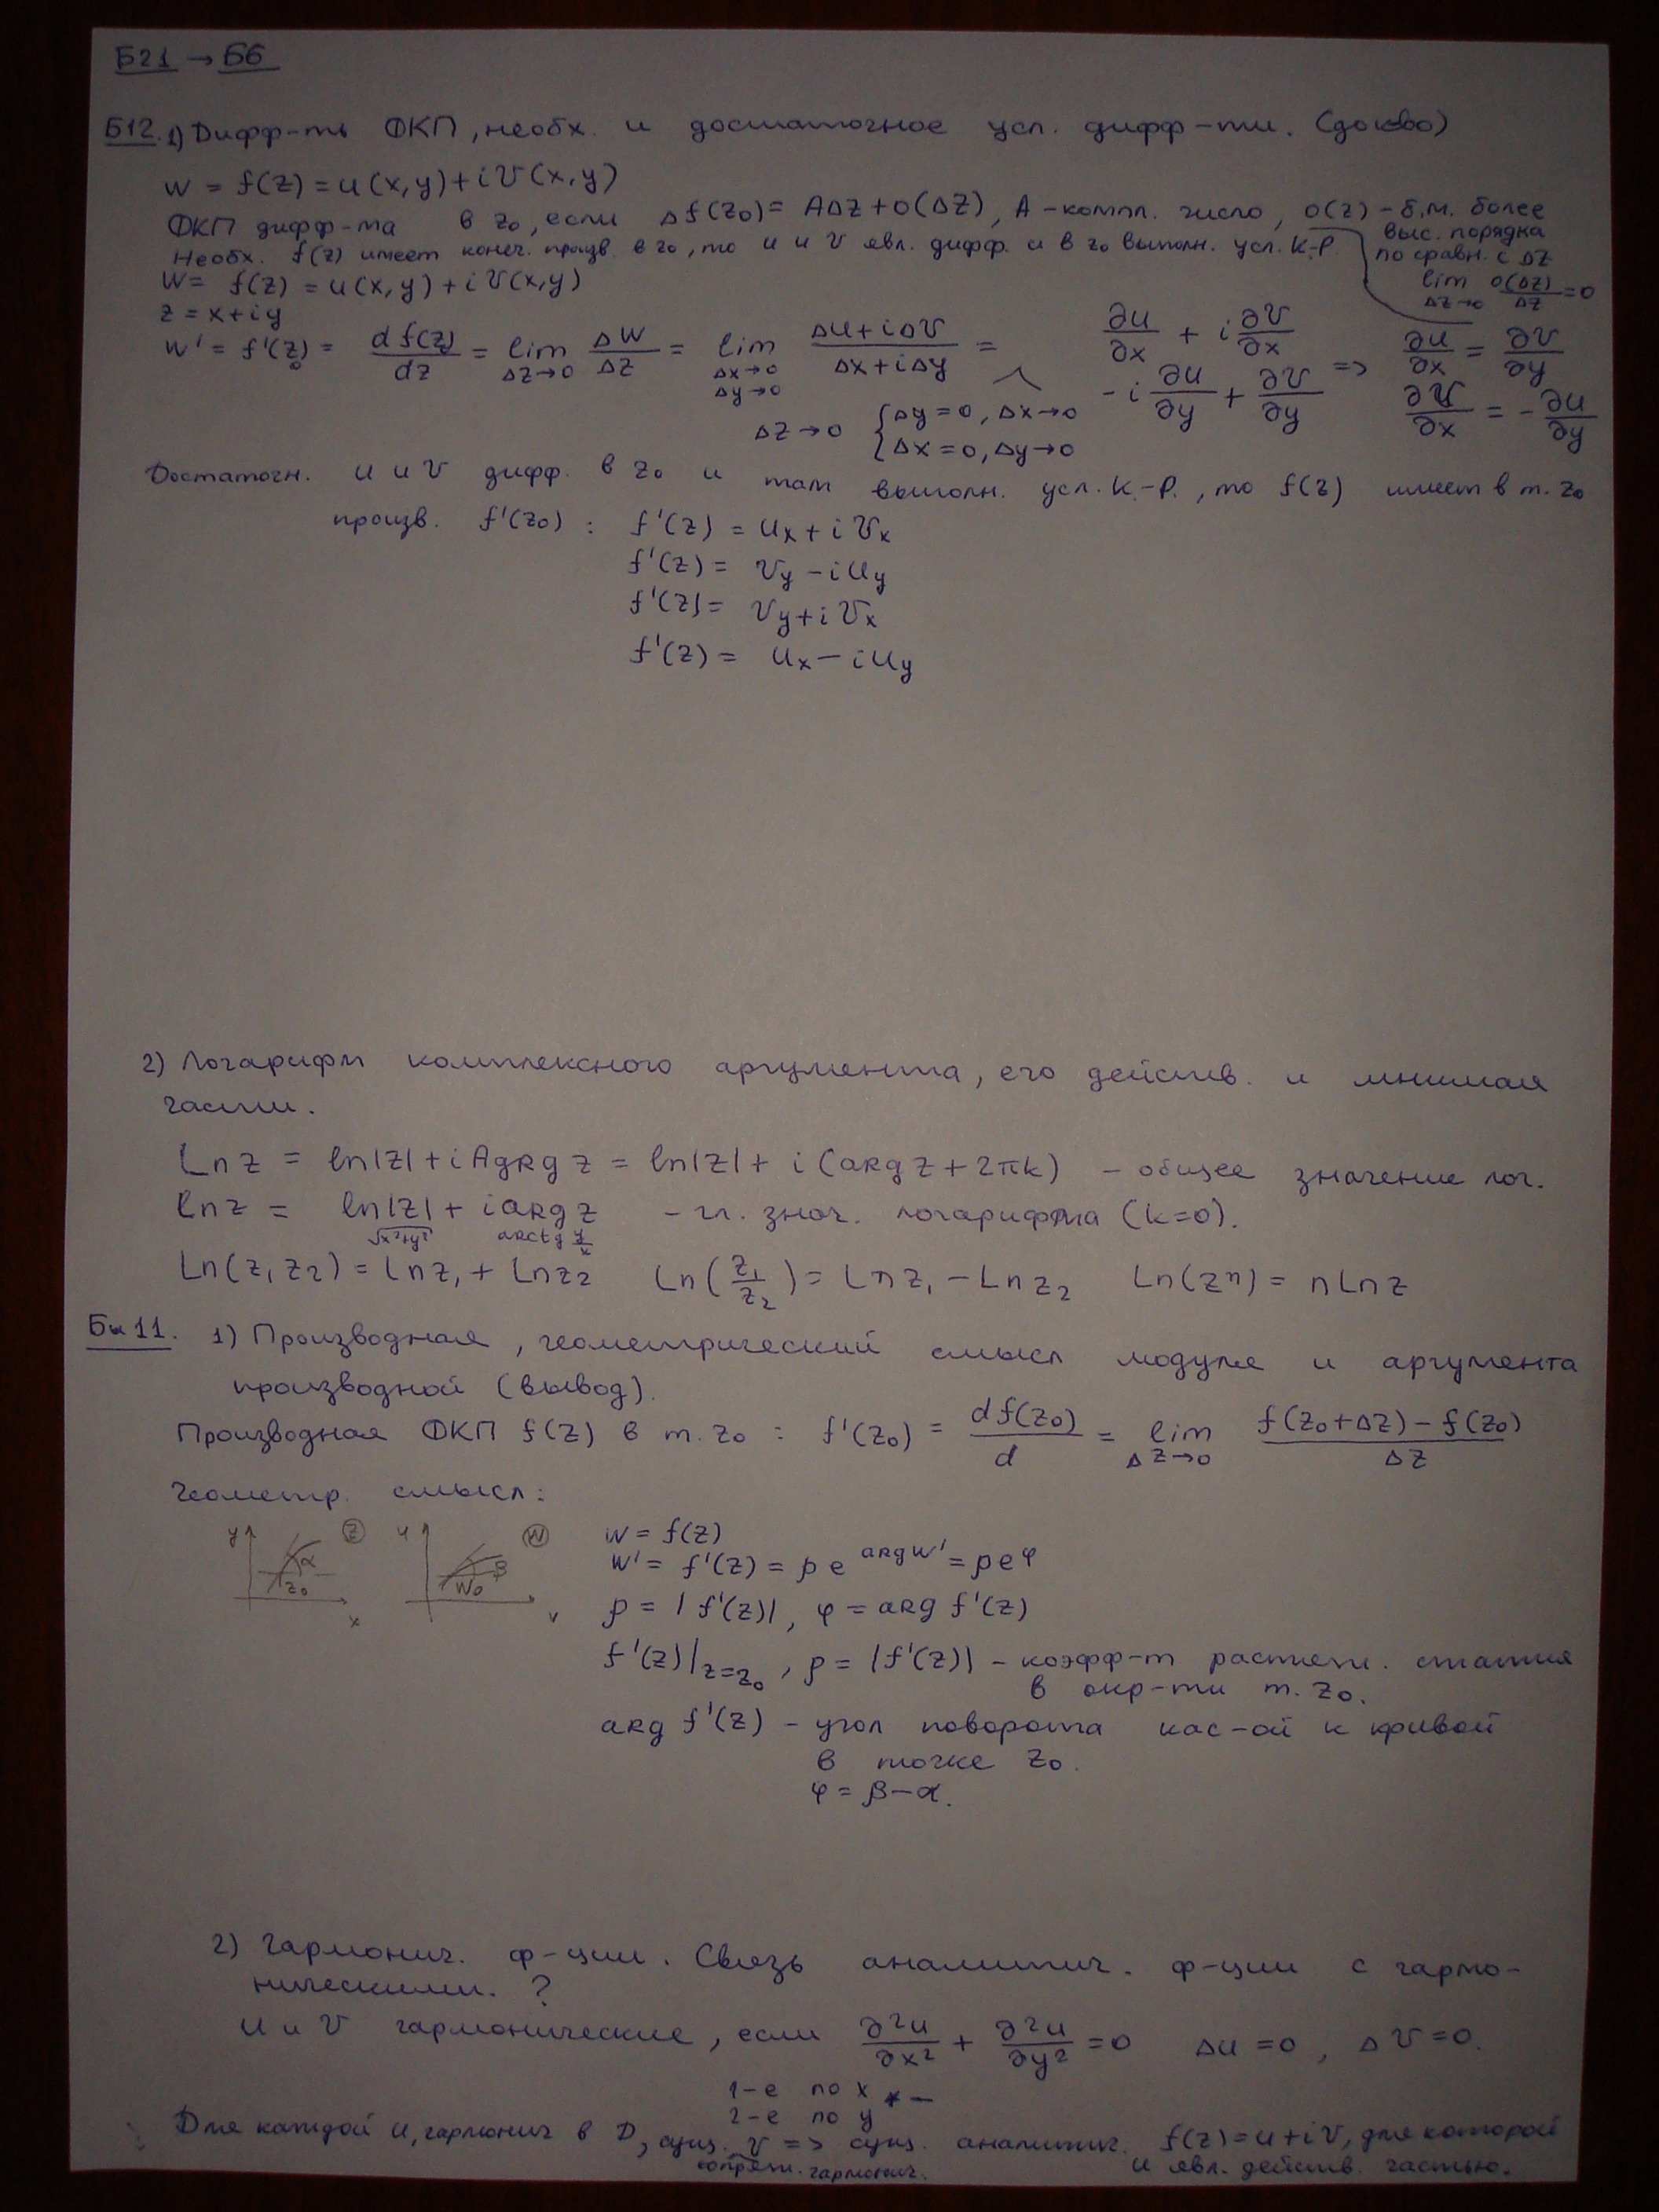 Б21 → Б6
Б12. 1) Дифф-ть ФКП, необх. и достаточное усл. дифф-ти. (док-во)
w = f(z) = u(x,y) + iV(x,y)
ФКП дифф-ма в z₀, если Δf(z₀) = AΔz + o(Δz), A - компл. число, o(z) - б.м. более
выс. порядка
Необх. f(z) имеет конеч. произв. в z₀, то u и V явл. дифф. и в z₀ выполн. усл. К.-Р.
по сравн. с Δz
lim_{Δz→0} o(Δz)/Δz = 0
W = f(z) = u(x,y) + iV(x,y)
z = x + iy
W' = f'(z₀) = df(z)/dz = lim_{Δz→0} ΔW/Δz = lim_{Δx→0, Δy→0} (Δu + iΔV)/(Δx + iΔy) =
∂u/∂x + i ∂V/∂x
-i ∂u/∂y + ∂V/∂y
=> ∂u/∂x = ∂V/∂y
∂V/∂x = - ∂u/∂y
Δz→0 { Δy = 0, Δx→0
Δx = 0, Δy→0
Достаточн. u и V дифф. в z₀ и там выполн. усл. К.-Р., то f(z) имеет в т. z₀
произв. f'(z₀) : f'(z) = Ux + iVx
f'(z) = Vy - iUy
f'(z) = Vy + iVx
f'(z) = Ux - iUy
2) Логарифм комплексного аргумента, его действ. и мнимая
части.
Ln z = ln|z| + i Agrg z = ln|z| + i(arg z + 2πk) - общее значение лог.
ln z = ln|z| + i arg z - гл. знач. логарифма (k=0).
√x²+y² arctg y/x
Ln(z₁z₂) = Lnz₁ + Lnz₂ Ln(z₁/z₂) = Lnz₁ - Lnz₂ Ln(zⁿ) = nLnz
Би 11. 1) Производная, геометрический смысл модуля и аргумента
производной (вывод).
Производная ФКП f(z) в т. z₀ : f'(z₀) = df(z₀)/d = lim_{Δz→0} (f(z₀+Δz) - f(z₀))/Δz
Геометр. смысл:
y α z₀ x Z
u β W₀ v W
w = f(z)
W' = f'(z) = ρe^{arg w'} = ρe^φ
ρ = |f'(z)|, φ = arg f'(z)
f'(z)|_{z=z₀}, ρ = |f'(z)| - коэфф-т растяж. сжатия
в окр-ти т. z₀.
arg f'(z) - угол поворота кас-ой к кривой
в точке z₀.
φ = β - α.
2) Гармонич. ф-ции. Связь аналитич. ф-ции с гармо-
ническими. ?
u и V гармонические, если ∂²u/∂x² + ∂²u/∂y² = 0 Δu = 0, ΔV = 0.
1-е по x
2-е по y
Для каждой u, гармонич в D, сущ. V => сущ. аналитич. f(z) = u + iV, для которой
сопряж. гармонич. u явл. действ. частью.